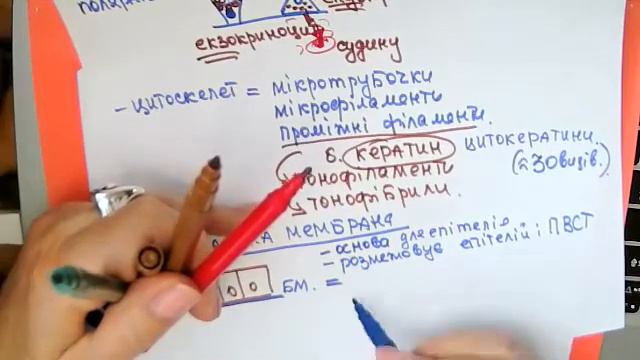 екзокриноцит
судину
- цитоскелет = мікротрубочки
мікрофіламенти
проміжні філаменти.
б. кератин цитокератини.
(≈30 видів)
тонофіламенти
тонофібрили.
МЕМБРАНА
- основа для епітелія
- розмежовує епітелій і ПВСТ
БМ. =